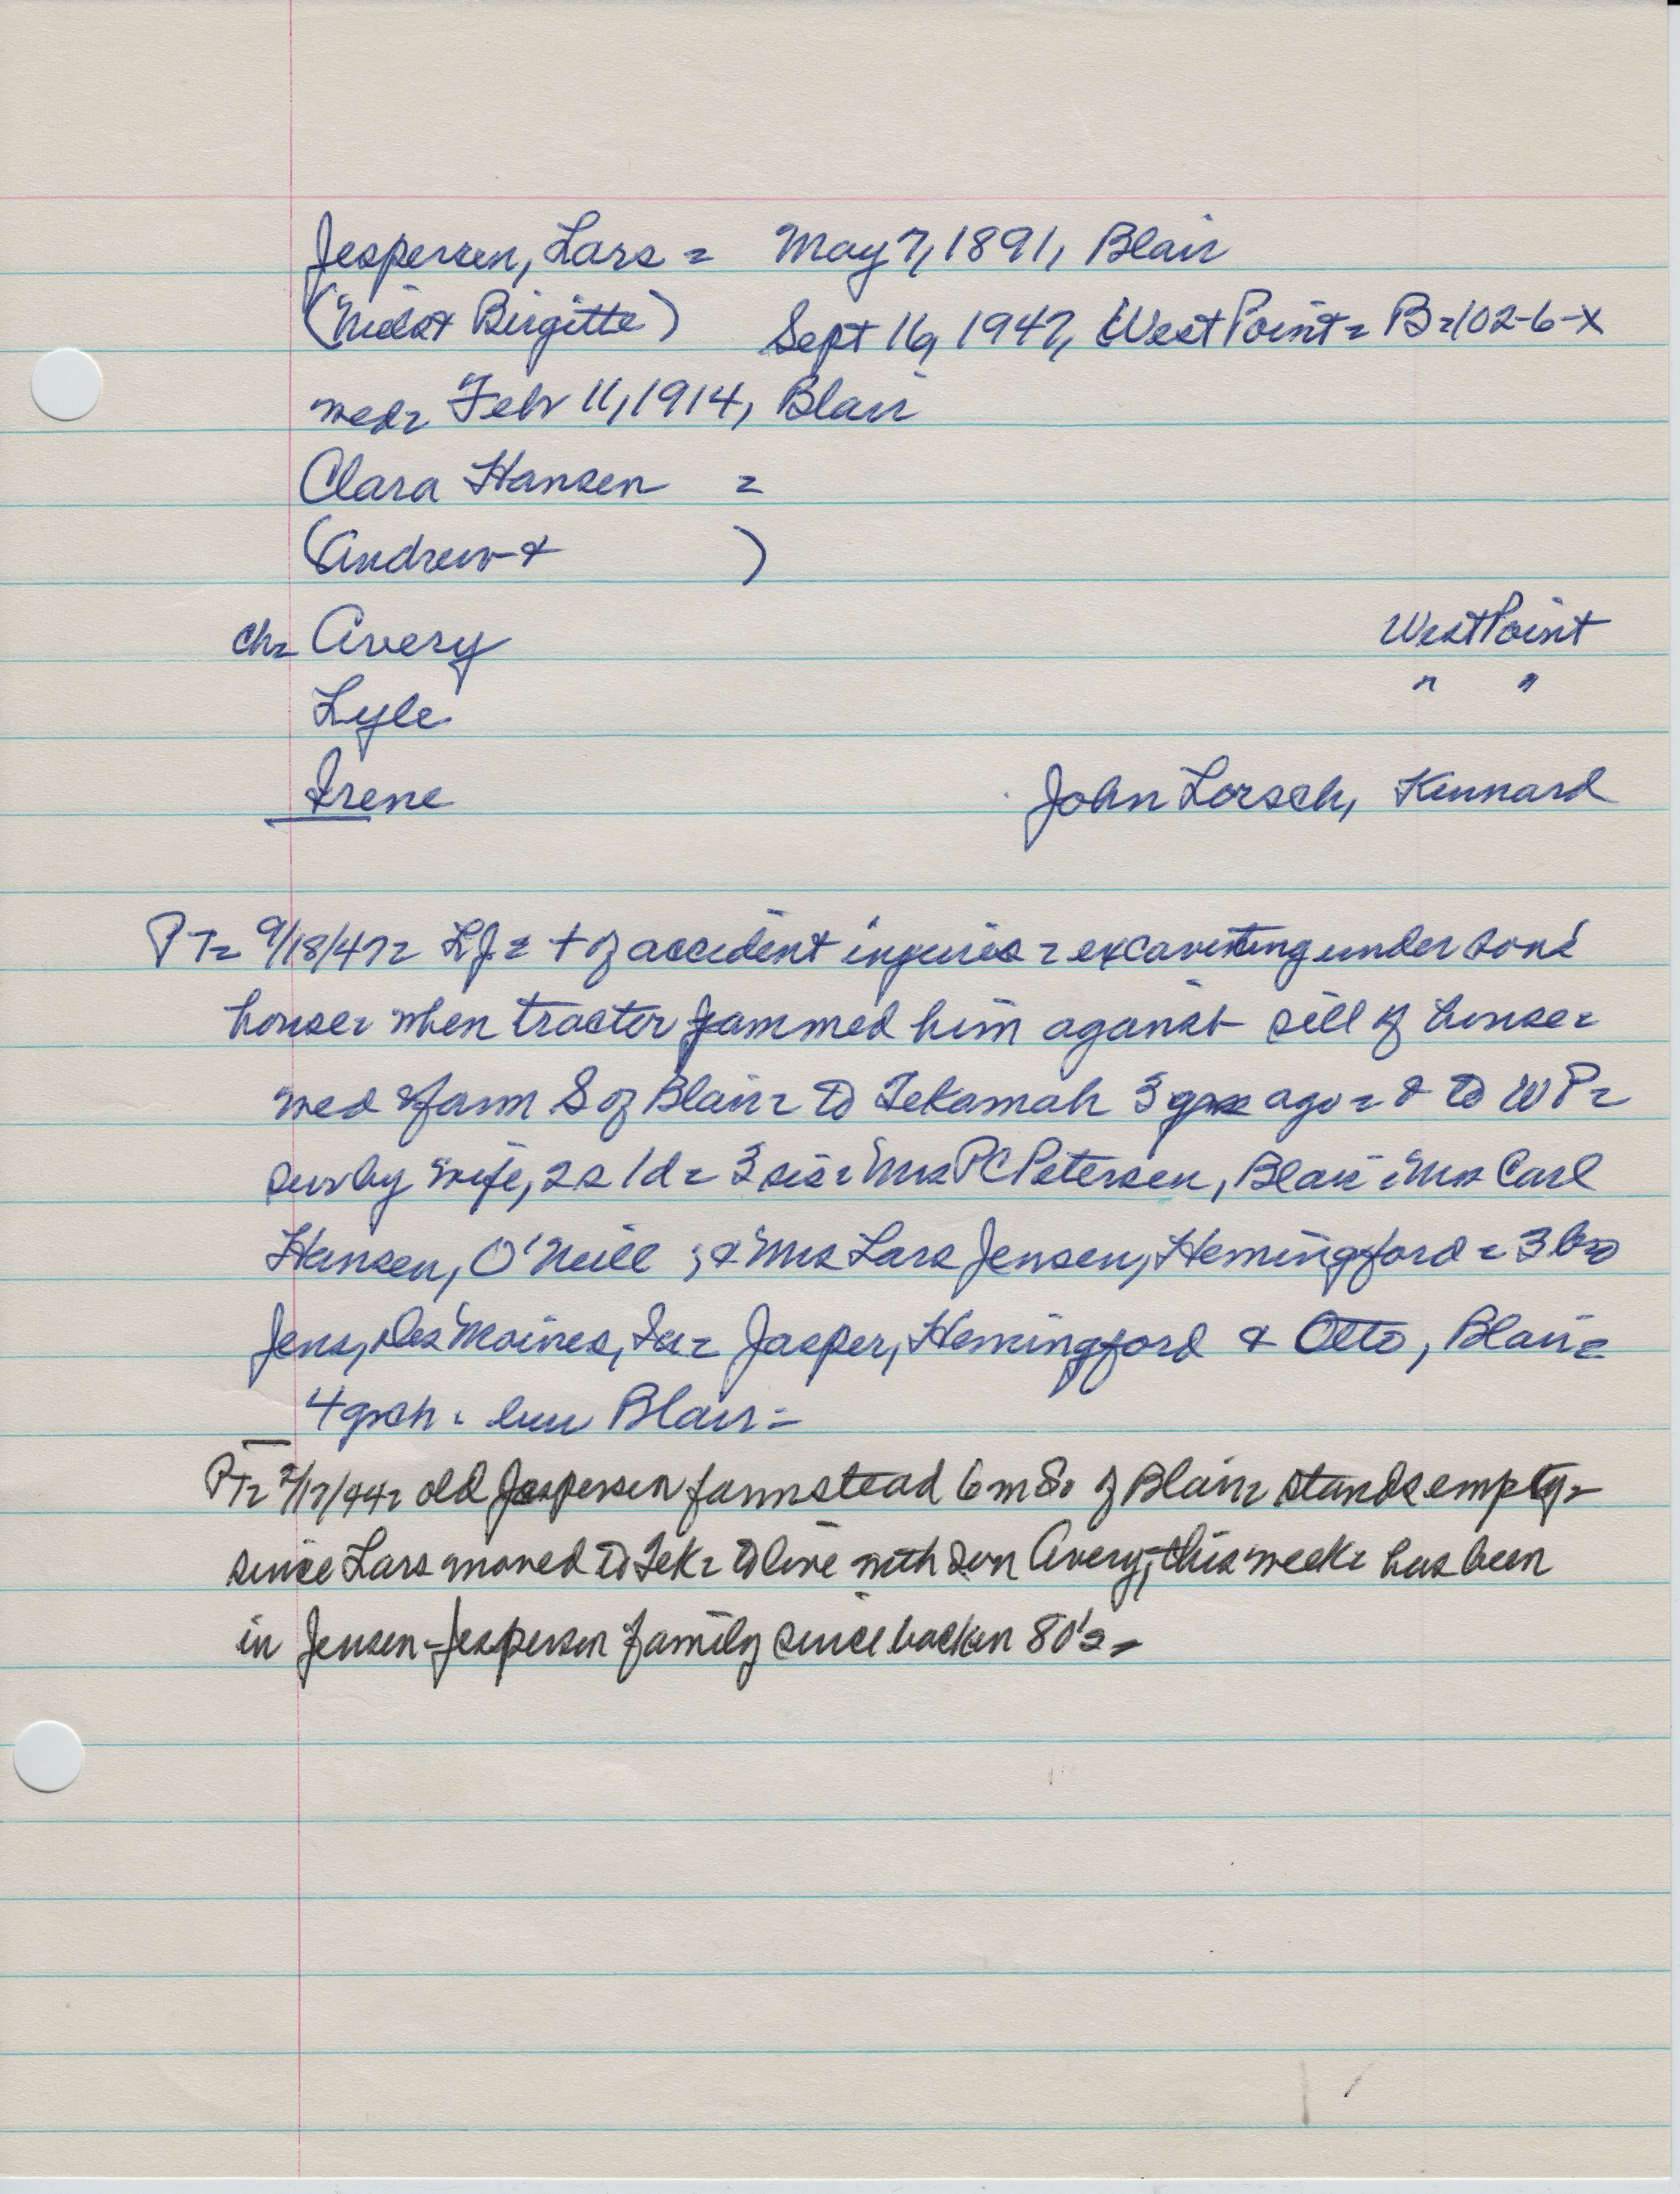 Jespersen, Lars = May 7, 1891, Blair
(Niels + Birgitte) Sept 16, 1947, West Point = B=102-6-X
med= Febr 11, 1914, Blair
Clara Hansen =
(Andrew + )
ch= Avery West Point
Lyle " "
Irene John Lorsch, Kennard
PT= 9/18/47= LJ = + of accident injuries = excavating under sons'
house= when tractor jammed him against sill of house=
med & farm S of Blair= to Tekamah 3 yrs ago = & to WP=
surv by wife, 2s 1d = 3 sis= Mrs PC Petersen, Blair = Mrs Carl
Hansen, O'Neill ; & Mrs Lars Jensen, Hemingford = 3 bro
Jens, Des Moines, Ia= Jasper, Hemingford & Otto, Blair=
4 grch = bur Blair =
PT= 2/17/44= old Jespersen farmstead 6 m So of Blair= stands empty=
since Lars moved to Tek= to live with son Avery, this week= has been
in Jensen-Jespersen family since back in 80's=